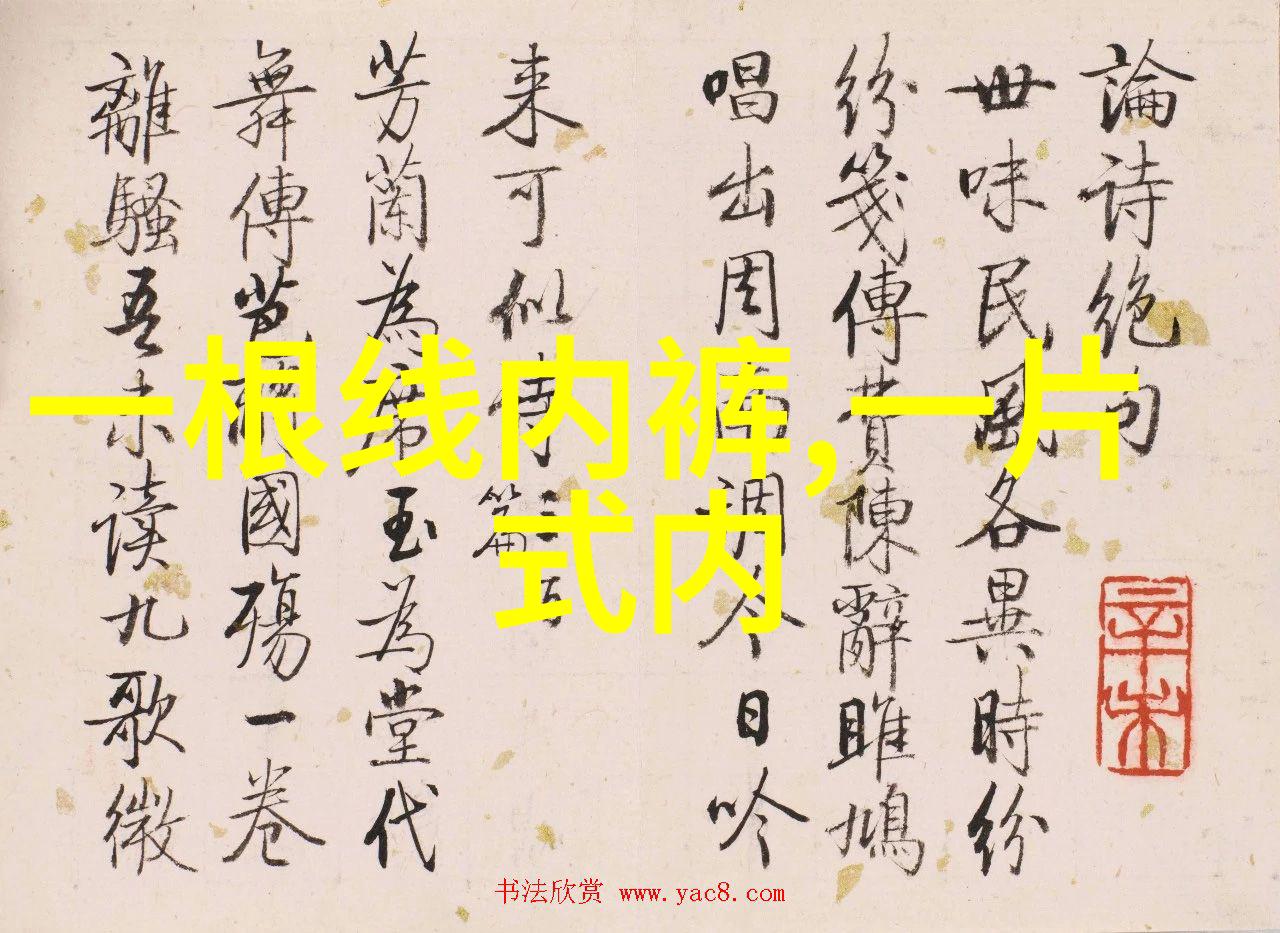 論诗绝句
世味民風各異時纷
纷笺傳費陳辭雎鳩
唱出周南調今日吟
来可似
芳蘭為席玉為堂代
舞傳芭禮國殤一卷
離騷吾未读九歌微
一根线内裤,一片
式内
书法欣赏 www.yac8.com